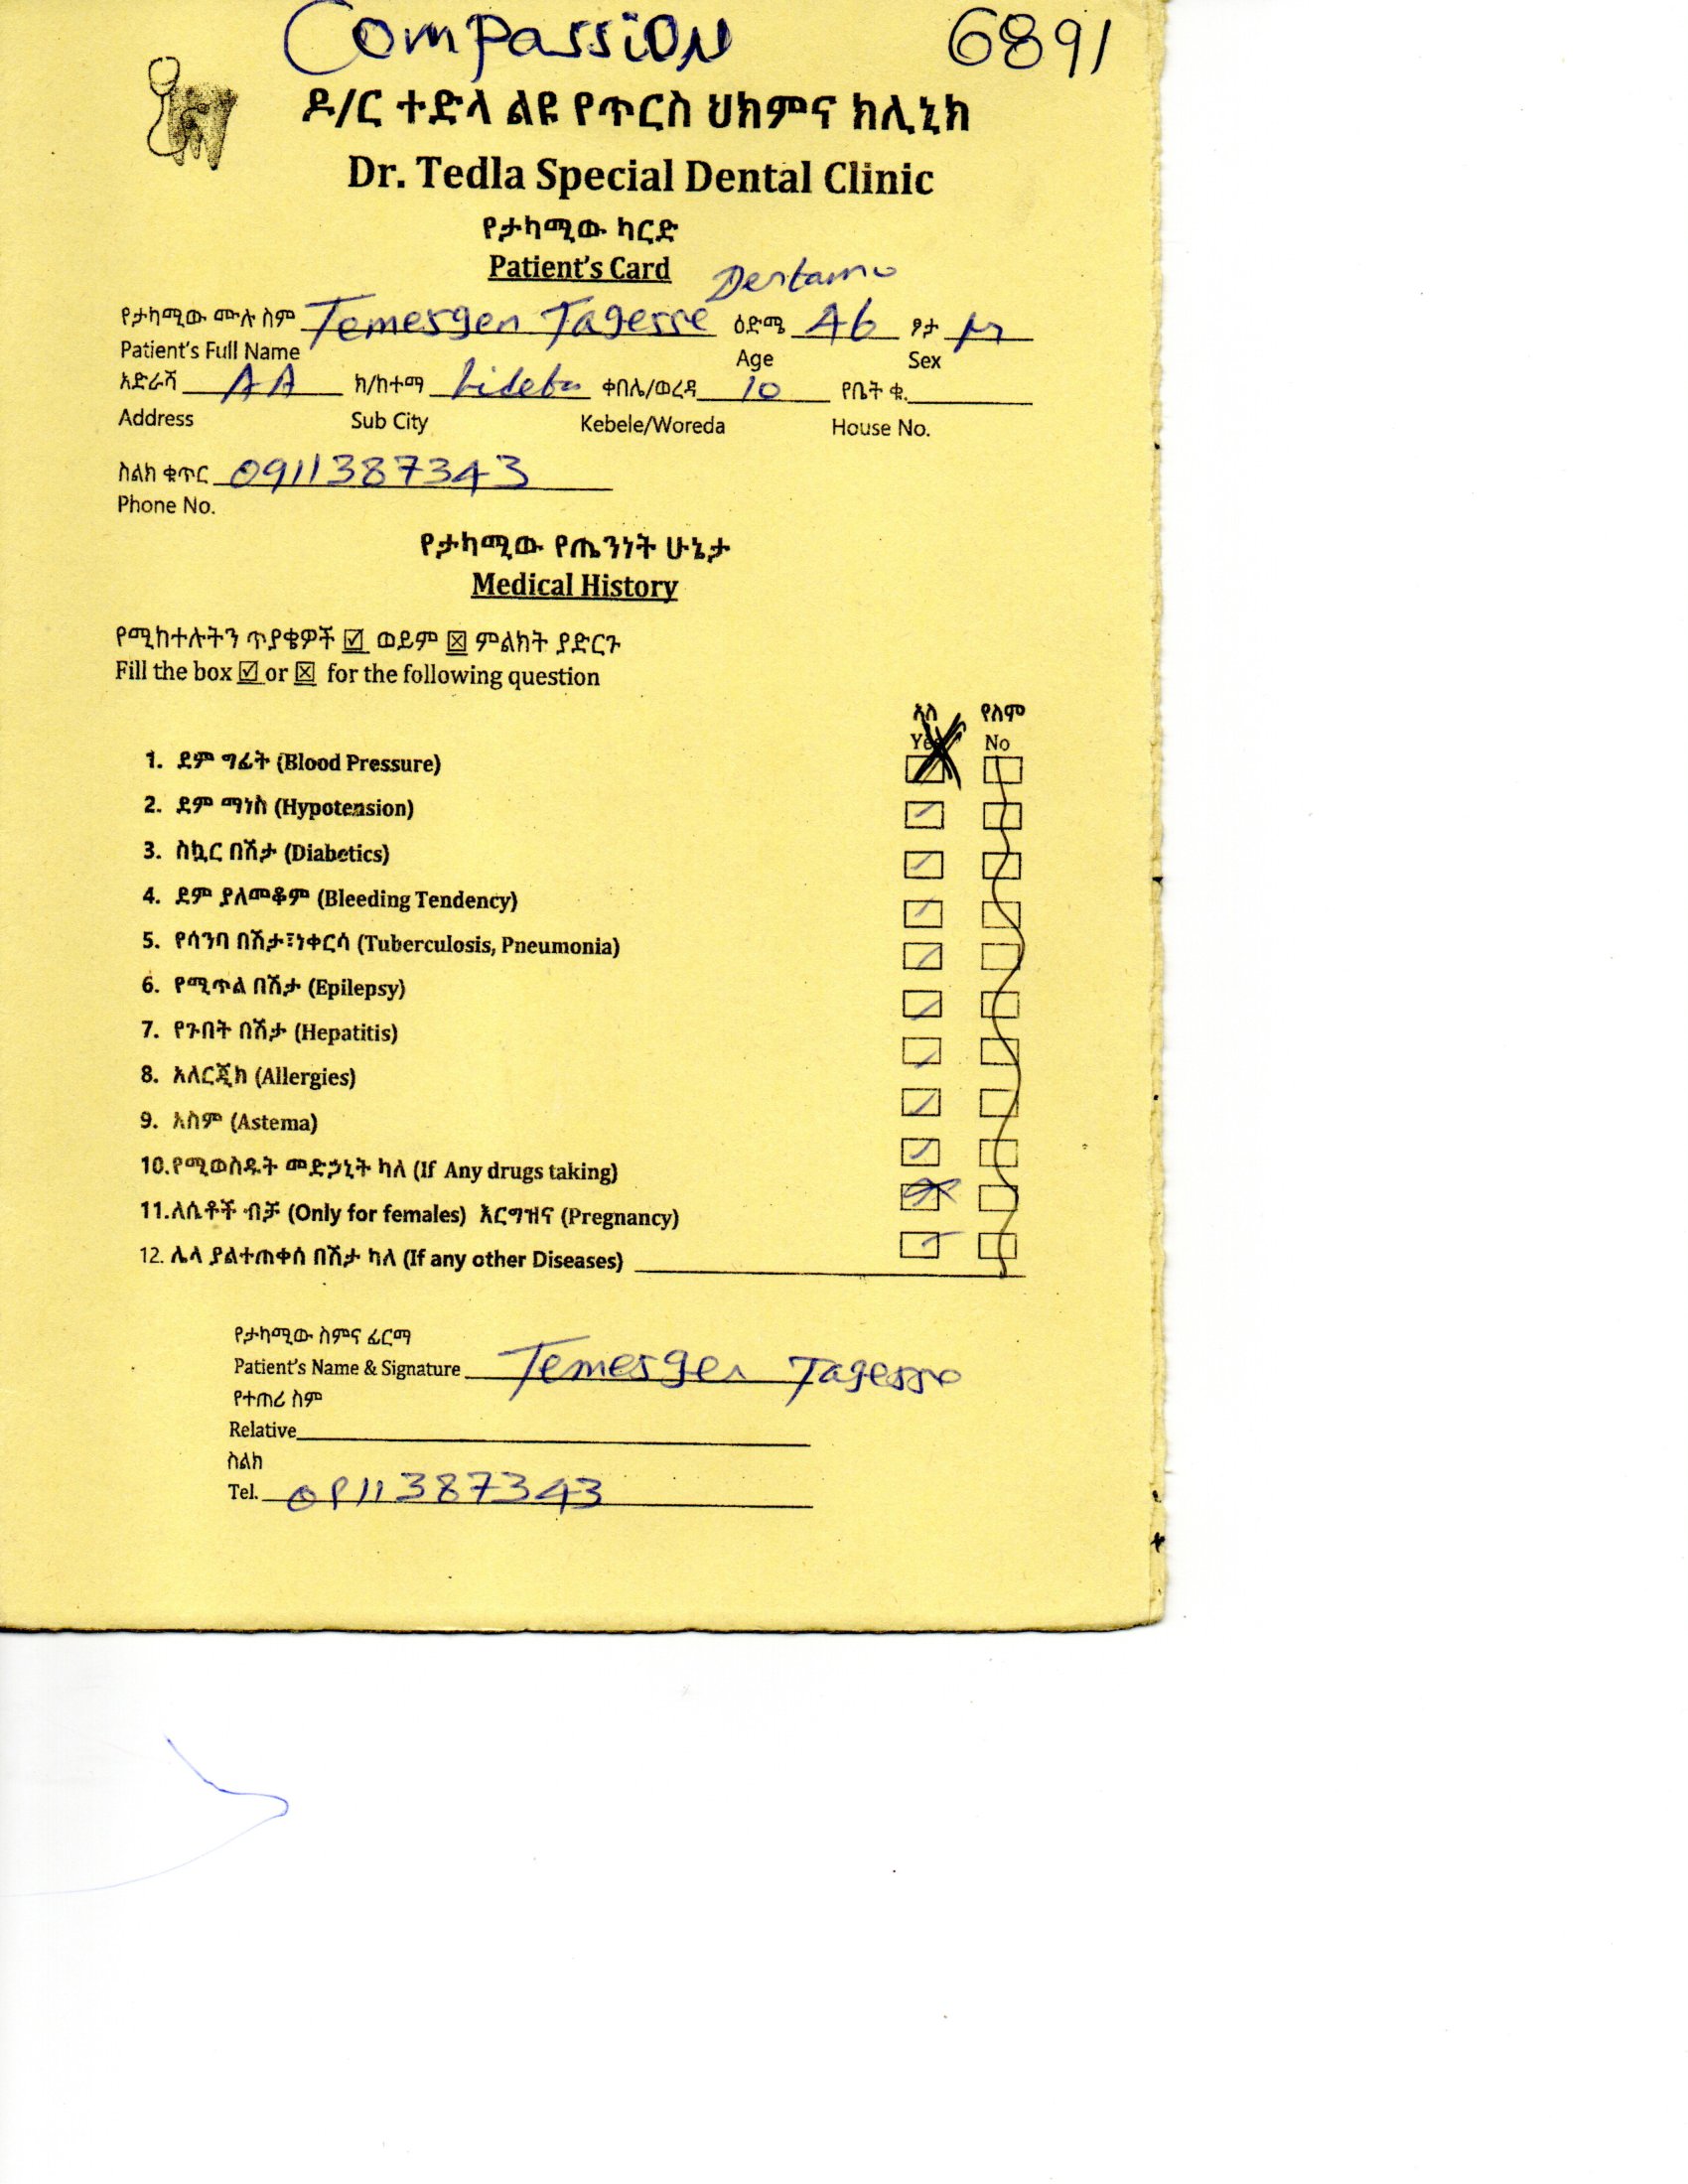 Compassion 6891
ዶ/ር ተድላ ልዩ የጥርስ ህክምና ክሊኒክ
Dr. Tedla Special Dental Clinic
የታካሚው ካርድ
Patient's Card
የታካሚው ሙሉ ስም Temesgen Tagesse ዕድሜ 46 ፆታ M
Patient's Full Name Age Sex
አድራሻ AA ክ/ከተማ Lideta ቀበሌ/ወረዳ 10 የቤት ቁ.
Address Sub City Kebele/Woreda House No.
ስልክ ቁጥር 0911387343
Phone No.
የታካሚው የጤንነት ሁኔታ
Medical History
የሚከተሉትን ጥያቄዎች ☑ ወይም ☒ ምልክት ያድርጉ
Fill the box ☑ or ☒ for the following question
አለ የለም
Yes No
1. ደም ግፊት (Blood Pressure)
2. ደም ማነስ (Hypotension)
3. ስኳር በሽታ (Diabetics)
4. ደም ያለመቆም (Bleeding Tendency)
5. የሳንባ በሽታ፣ነቀርሳ (Tuberculosis, Pneumonia)
6. የሚጥል በሽታ (Epilepsy)
7. የጉበት በሽታ (Hepatitis)
8. አለርጂክ (Allergies)
9. አስም (Astema)
10.የሚወስዱት መድኃኒት ካለ (If Any drugs taking)
11.ለሴቶች ብቻ (Only for females) እርግዝና (Pregnancy)
12. ሌላ ያልተጠቀሰ በሽታ ካለ (If any other Diseases)
የታካሚው ስምና ፊርማ
Patient's Name & Signature Temesgen Tagesse
የተጠሪ ስም
Relative
ስልክ
Tel. 0911387343